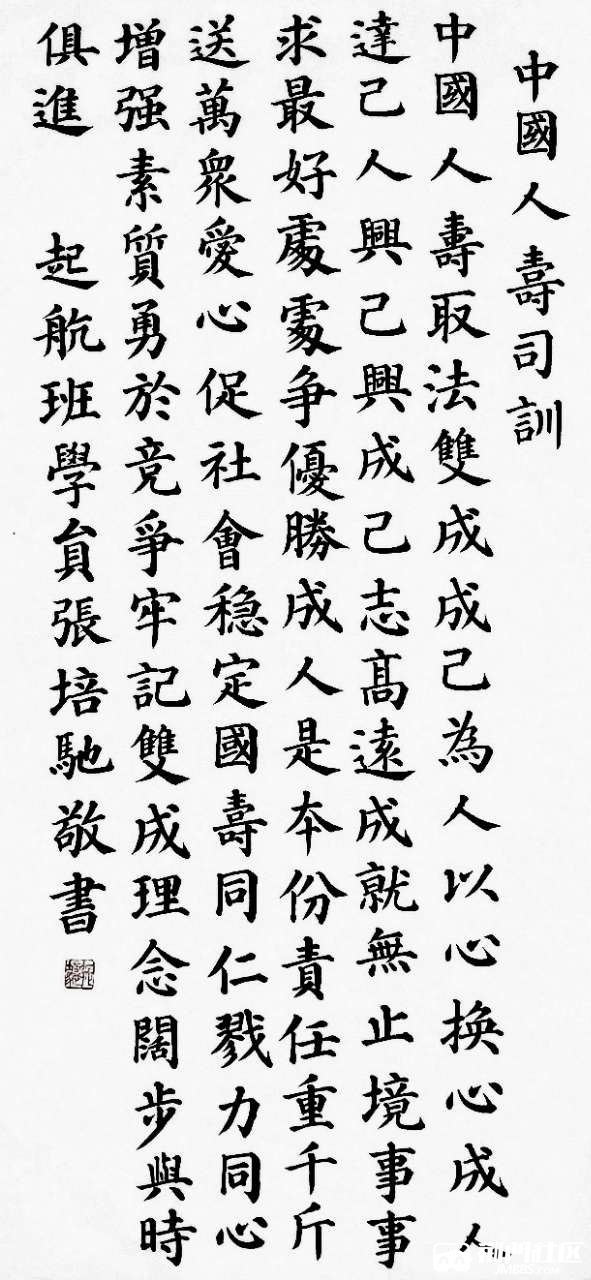 中國人壽司訓
中國人壽取法雙成成己為人以心換心成人
達己人興己興成己志高遠成就無止境事事
求最好處處争優勝成人是本份責任重千斤
送萬眾愛心促社會穩定國壽同仁戮力同心
增强素質勇於竞爭牢記雙成理念闊步與時
俱進 起航班學員張培馳敬書